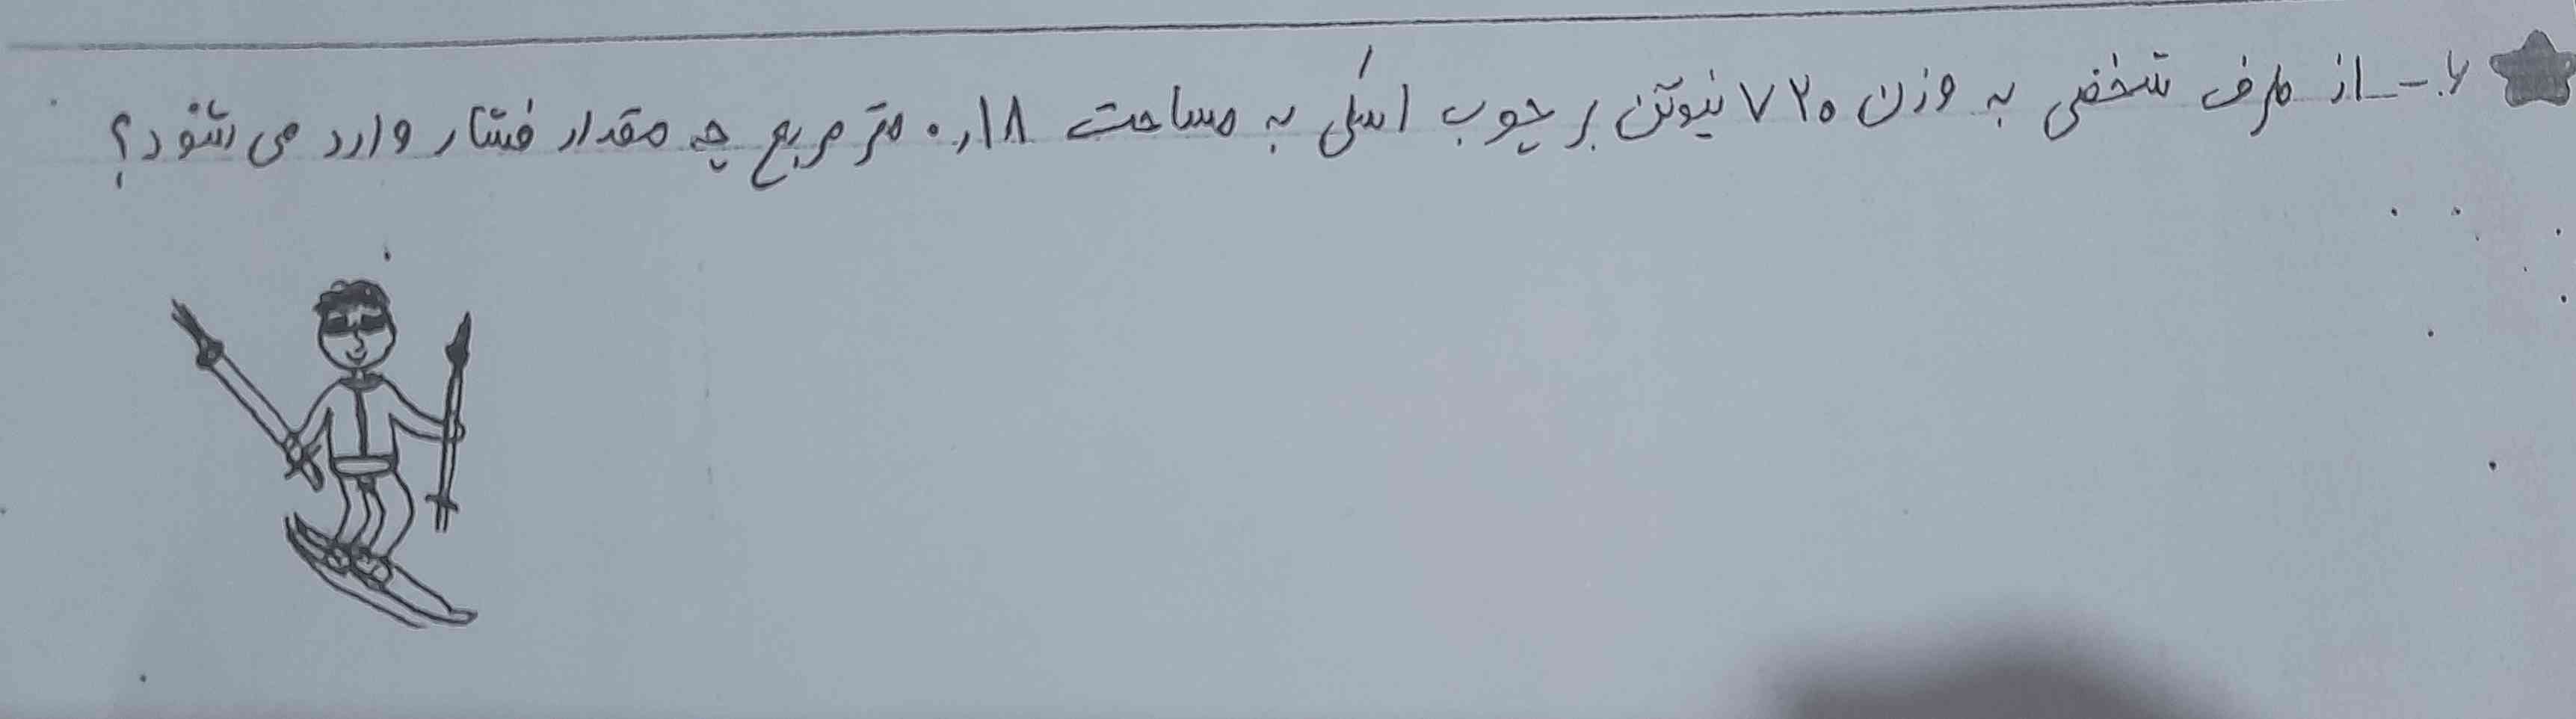 ۶- از طرف شخصی به وزن ۷۲۰ نیوتن بر چوب اسکی به مساحت ۰٫۱۸ متر مربع چه مقدار فشار وارد می شود؟